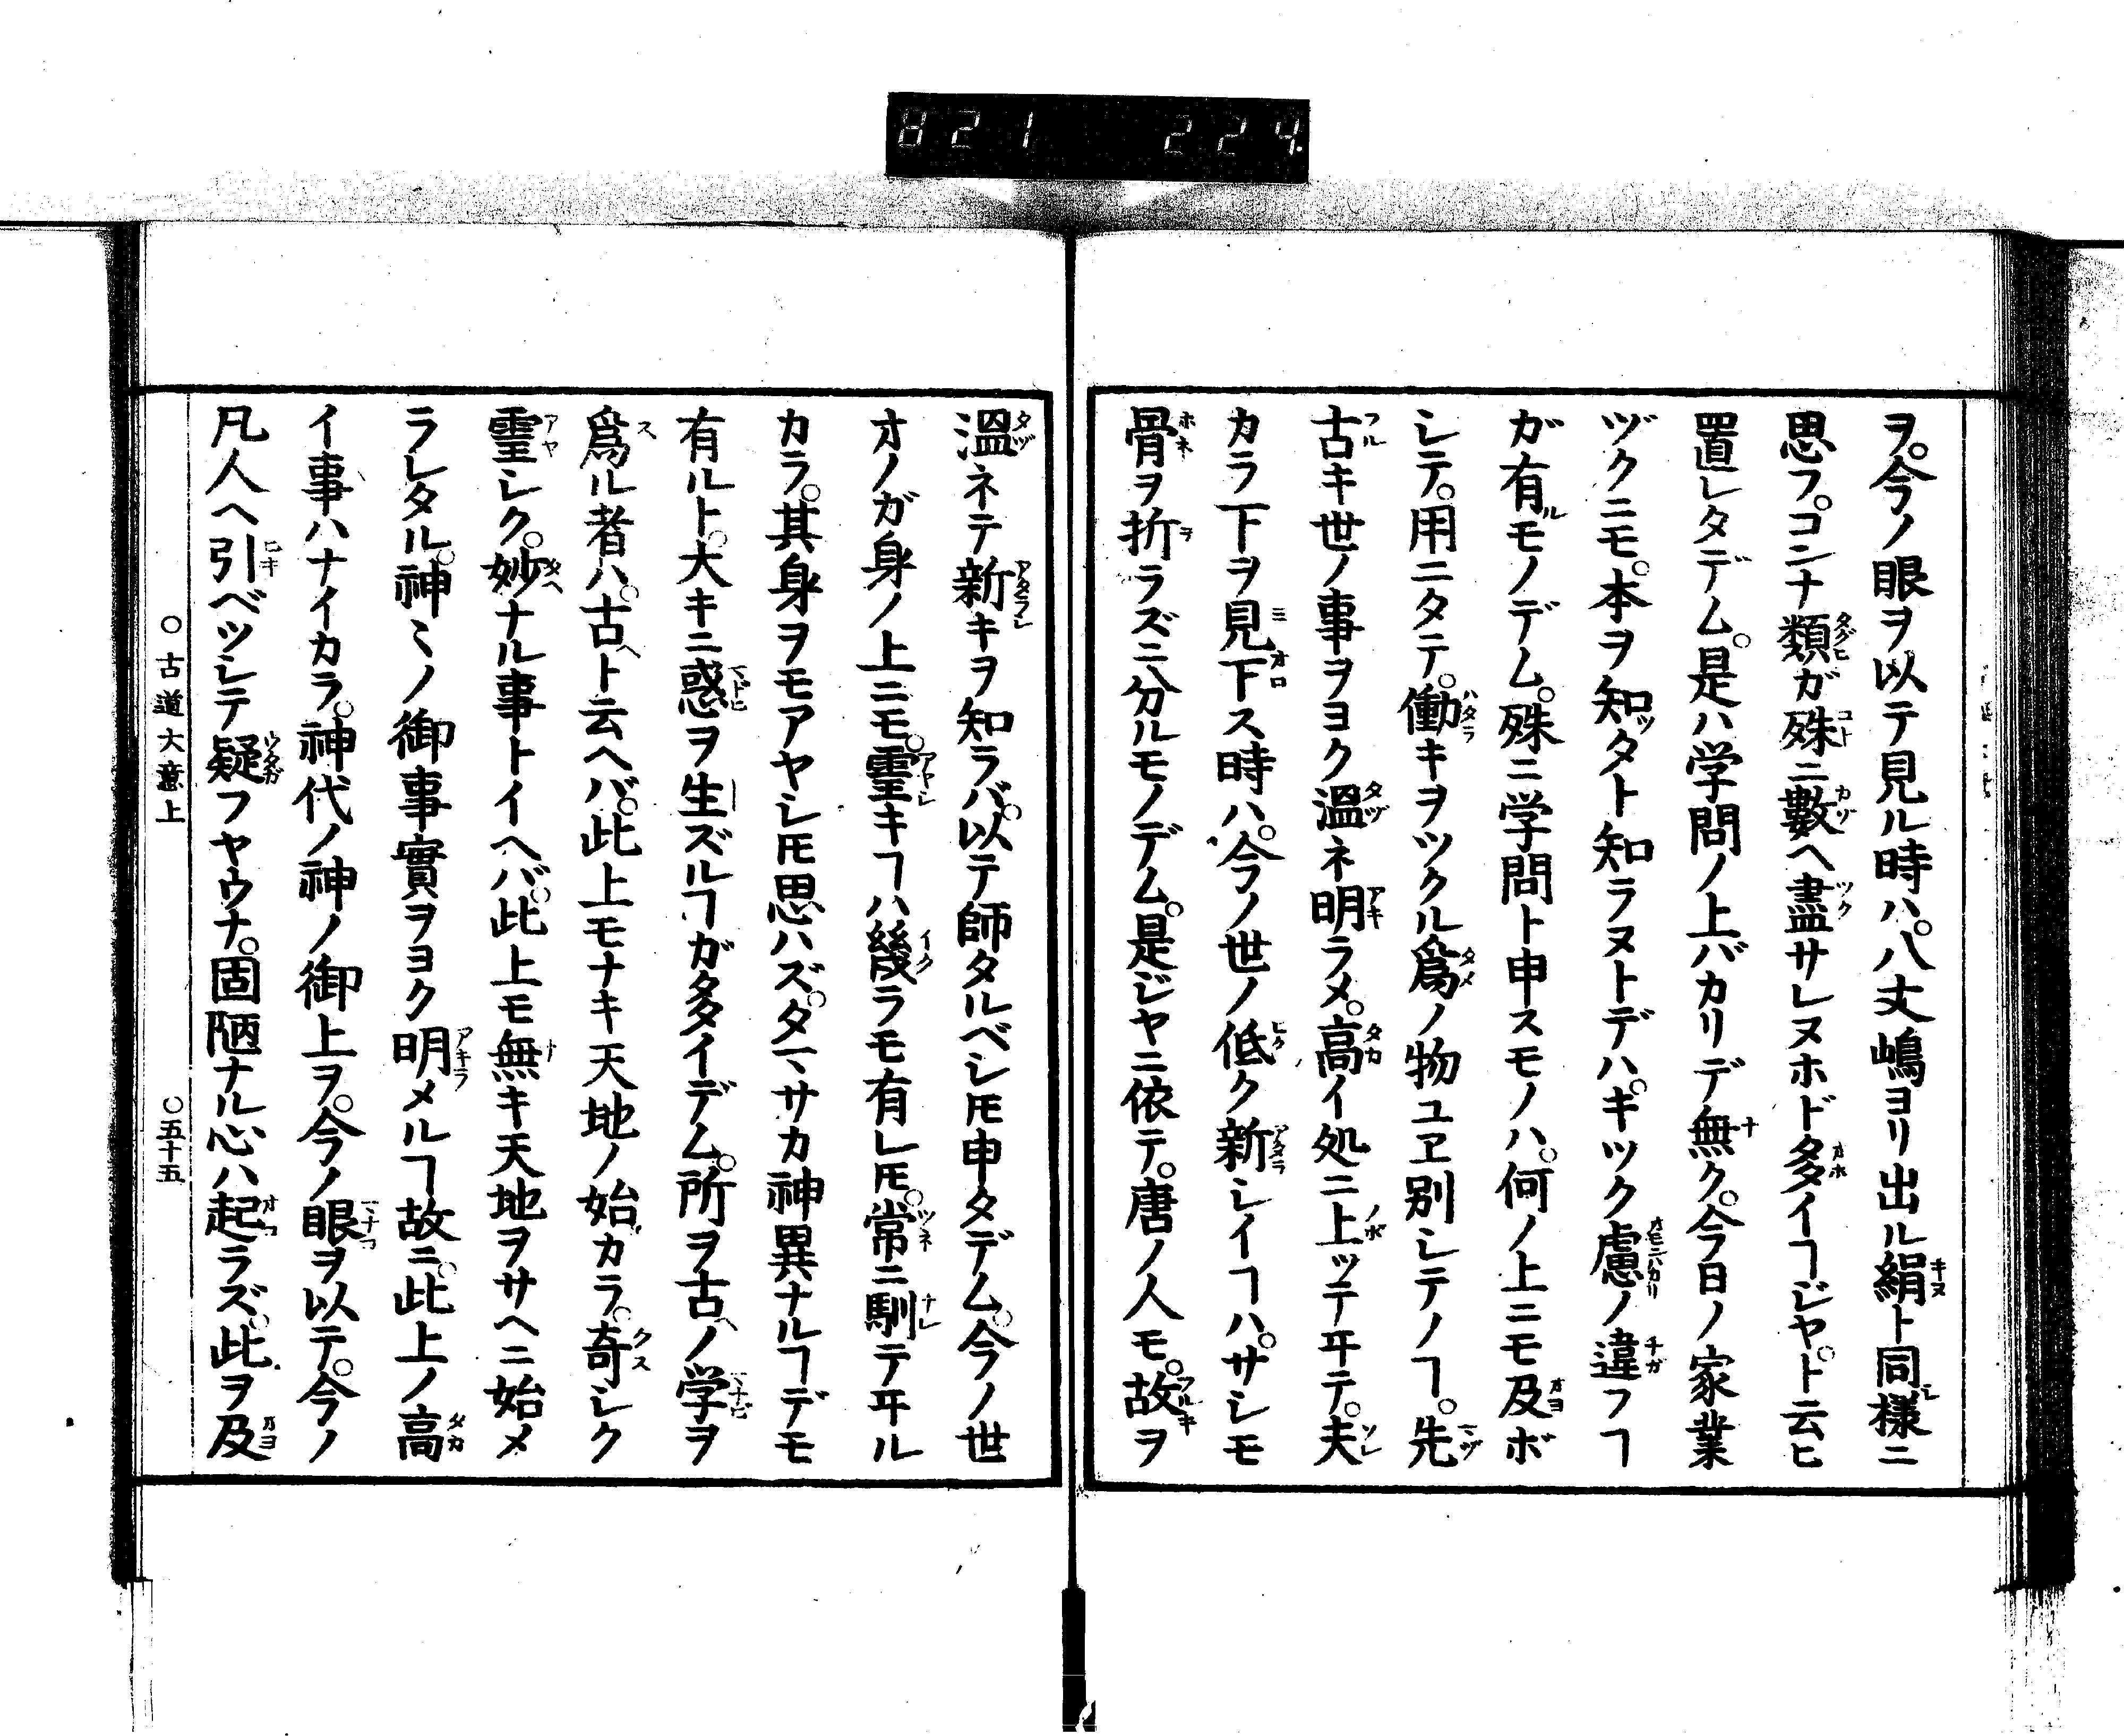 821 224
ヲ。今ノ眼ヲ以テ見ル時ハ。八丈嶋ヨリ出ル絹ト同シ様ニ
思フ。コンナ類ガ殊ニ數ヘ盡サレヌホド多イヿジヤ。ト云ヒ
置レタデム。是ハ学問ノ上バカリデ無ク。今日ノ家業
ヅクニモ。本ヲ知ッタト知ラヌトデハ。ギツク慮ノ違フヿ
ガ有ルモノデム。殊ニ学問ト申スモノハ。何ノ上ニモ及ボ
シテ。用ニタテ。働キヲツクル爲ノ物ユヱ別シテノヿ。先
古キ世ノ事ヲヨク溫ネ明ラメ。高イ処ニ上ッテヰテ。夫
カラ下ヲ見下ス時ハ。今ノ世ノ低ク新シイヿハ。サシモ
骨ヲ折ラズニ分ルモノデム。是ジヤニ依テ。唐ノ人モ。故ヲ
溫ネテ新キヲ知ラバ。以テ師タルベシㇳモ申タデム。今ノ世
オノガ身ノ上ニモ。霊キヿハ幾ラモ有レㇳモ。常ニ馴テヰル
カラ。其身ヲモアヤシㇳモ思ハズ。タマサカ神異ナルヿデモ
有ルト。大キニ惑ヲ生ズルヿガ多イデム。所ヲ古ヘノ学ヲ
爲ル者ハ。古ヘト云ヘバ。此上モナキ天地ノ始カラ。奇シク
霊シク。妙ナル事トイヘバ。此上モ無キ天地ヲサヘニ始メ
ラレタル。神ミノ御事實ヲヨク明メルヿ故ニ。此上ノ高
イ事ハナイカラ。神代ノ神ノ御上ヲ。今ノ眼ヲ以テ。今ノ
凡人ヘ引ベツシテ疑フヤウナ。固陋ナル心ハ起ラズ。此ヲ及
○古道大意上 ○五十五